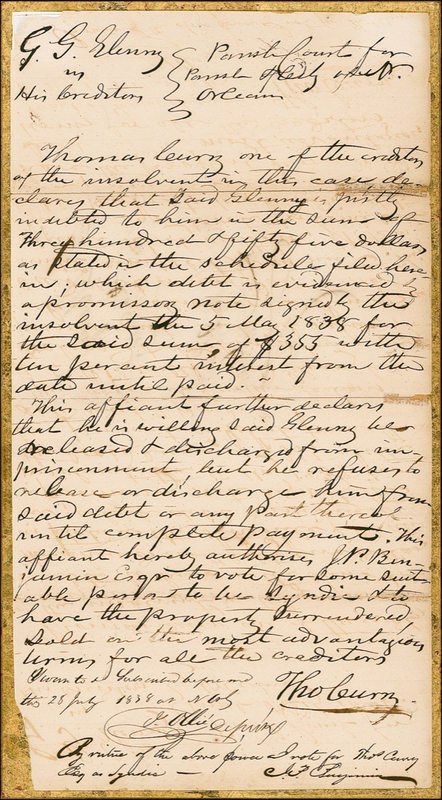 G. G. Glenny
vs
His Creditors
Parish Court for
Parish & City of N.
Orleans
Thomas Curry one of the creditors
of the insolvent in this case de-
clares that said Glenny is justly
indebted to him in the sum of
Three hundred & fifty five dollars
as stated in the schedule filed here-
in; which debt is evidenced by
a promissory note signed by the
insolvent the 5 May 1838 for
the said sum of $355 with
ten per cent interest from the
date until paid.
This affiant further declares
that he is willing said Glenny be
released & discharged from im-
prisonment but he refuses to
release or discharge him from
said debt or any part thereof
until complete payment. This
affiant hereby authorises J.P. Ben-
jamin Esqr to vote for some suit-
able person to be syndic & to
have the property surrendered
sold on the most advantageous
terms for all the creditors
Sworn to & subscribed before me
this 28 July 1838 at N Orl
Tho Curry
Dy Clk
By virtue of the above power I vote for Thos Curry
Esq as syndic —
J. P. Benjamin